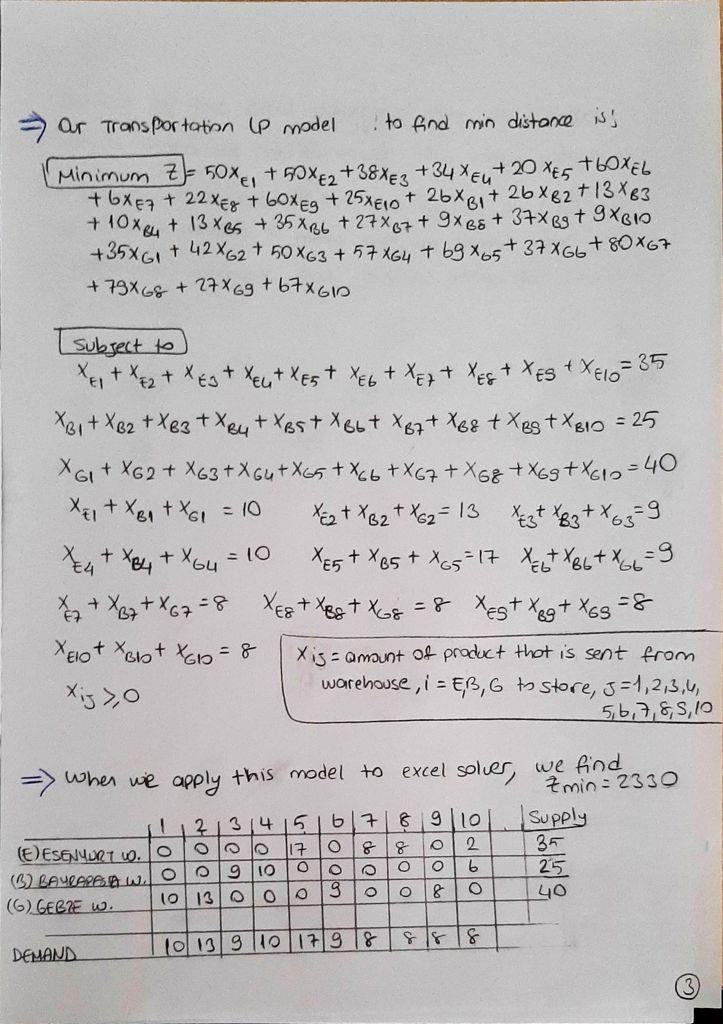 ⇒ Our Transportation LP model : to find min distance is;
Minimum Z = 50X_E1 + 50X_E2 + 38X_E3 + 34X_E4 + 20X_E5 + 60X_E6
+ 6X_E7 + 22X_E8 + 60X_E9 + 25X_E10 + 26X_B1 + 26X_B2 + 13X_B3
+ 10X_B4 + 13X_B5 + 35X_B6 + 27X_B7 + 9X_B8 + 37X_B9 + 9X_B10
+ 35X_G1 + 42X_G2 + 50X_G3 + 57X_G4 + 69X_G5 + 37X_G6 + 80X_G7
+ 79X_G8 + 27X_G9 + 67X_G10
Subject to
X_E1 + X_E2 + X_E3 + X_E4 + X_E5 + X_E6 + X_E7 + X_E8 + X_E9 + X_E10 = 35
X_B1 + X_B2 + X_B3 + X_B4 + X_B5 + X_B6 + X_B7 + X_B8 + X_B9 + X_B10 = 25
X_G1 + X_G2 + X_G3 + X_G4 + X_G5 + X_G6 + X_G7 + X_G8 + X_G9 + X_G10 = 40
X_E1 + X_B1 + X_G1 = 10 X_E2 + X_B2 + X_G2 = 13 X_E3 + X_B3 + X_G3 = 9
X_E4 + X_B4 + X_G4 = 10 X_E5 + X_B5 + X_G5 = 17 X_E6 + X_B6 + X_G6 = 9
X_E7 + X_B7 + X_G7 = 8 X_E8 + X_B8 + X_G8 = 8 X_E9 + X_B9 + X_G9 = 8
X_E10 + X_B10 + X_G10 = 8
X_ij ≥ 0
X_ij = amount of product that is sent from
warehouse, i = E, B, G to store, j = 1, 2, 3, 4,
5, 6, 7, 8, 9, 10
⇒ When we apply this model to excel solver, we find
Zmin = 2330
1 2 3 4 5 6 7 8 9 10 Supply
(E) ESENYURT W. 0 0 0 0 17 0 8 8 0 2 35
(B) BAYRAPAŞA W. 0 0 9 10 0 0 0 0 0 6 25
(G) GEBZE W. 10 13 0 0 0 9 0 0 8 0 40
DEMAND 10 13 9 10 17 9 8 8 8 8
3